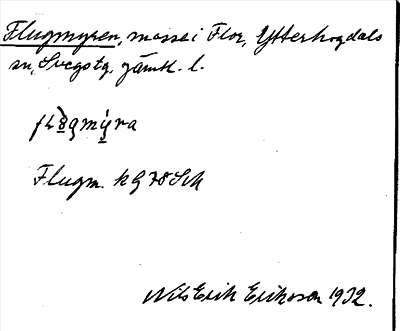 Flugmyren, mosse i Flor, Ytterhogdals
sn, Svegs tg, Jämtl. l.
Flugm. kG 78 SV
Nils Erik Eriksson 1932.